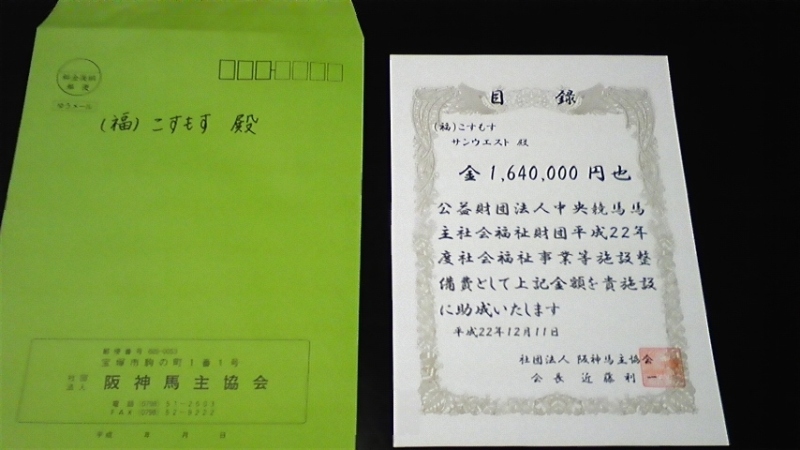 料金後納
郵便
ゆうメール
(福)こすもす 殿
郵便番号
宝塚市駒の町1番1号
社団
法人
阪神馬主協会
電話 (0798) 51-2603
FAX (0798) 52-9222
平成 年 月 日
目録
(福)こすもす
サンウエスト 殿
金1,640,000円也
公益財団法人中央競馬馬
主社会福祉財団平成22年
度社会福祉事業等施設整
備費として上記金額を貴施設
に助成いたします
平成22年12月11日
社団法人 阪神馬主協会
会長 近藤利一